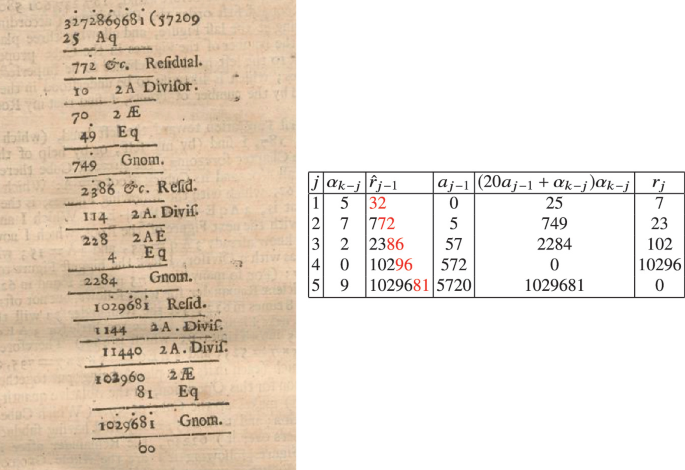 3272869681 (57209
25 Aq
772 &c. Reſidual.
10 2A Diviſor.
70 2 Æ
49 Eq
749 Gnom.
2386 &c. Reſid.
114 2A. Diviſ.
228 2AE
4 Eq
2284 Gnom.
1029681 Reſid.
1144 2A. Diviſ.
11440 2A. Diviſ.
102960 2Æ
81 Eq
1029681 Gnom.
60
j α_{k−j} r̂_{j−1} a_{j−1} (20a_{j−1} + α_{k−j})α_{k−j} r_j
1 5 32 0 25 7
2 7 772 5 749 23
3 2 2386 57 2284 102
4 0 10296 572 0 10296
5 9 1029681 5720 1029681 0